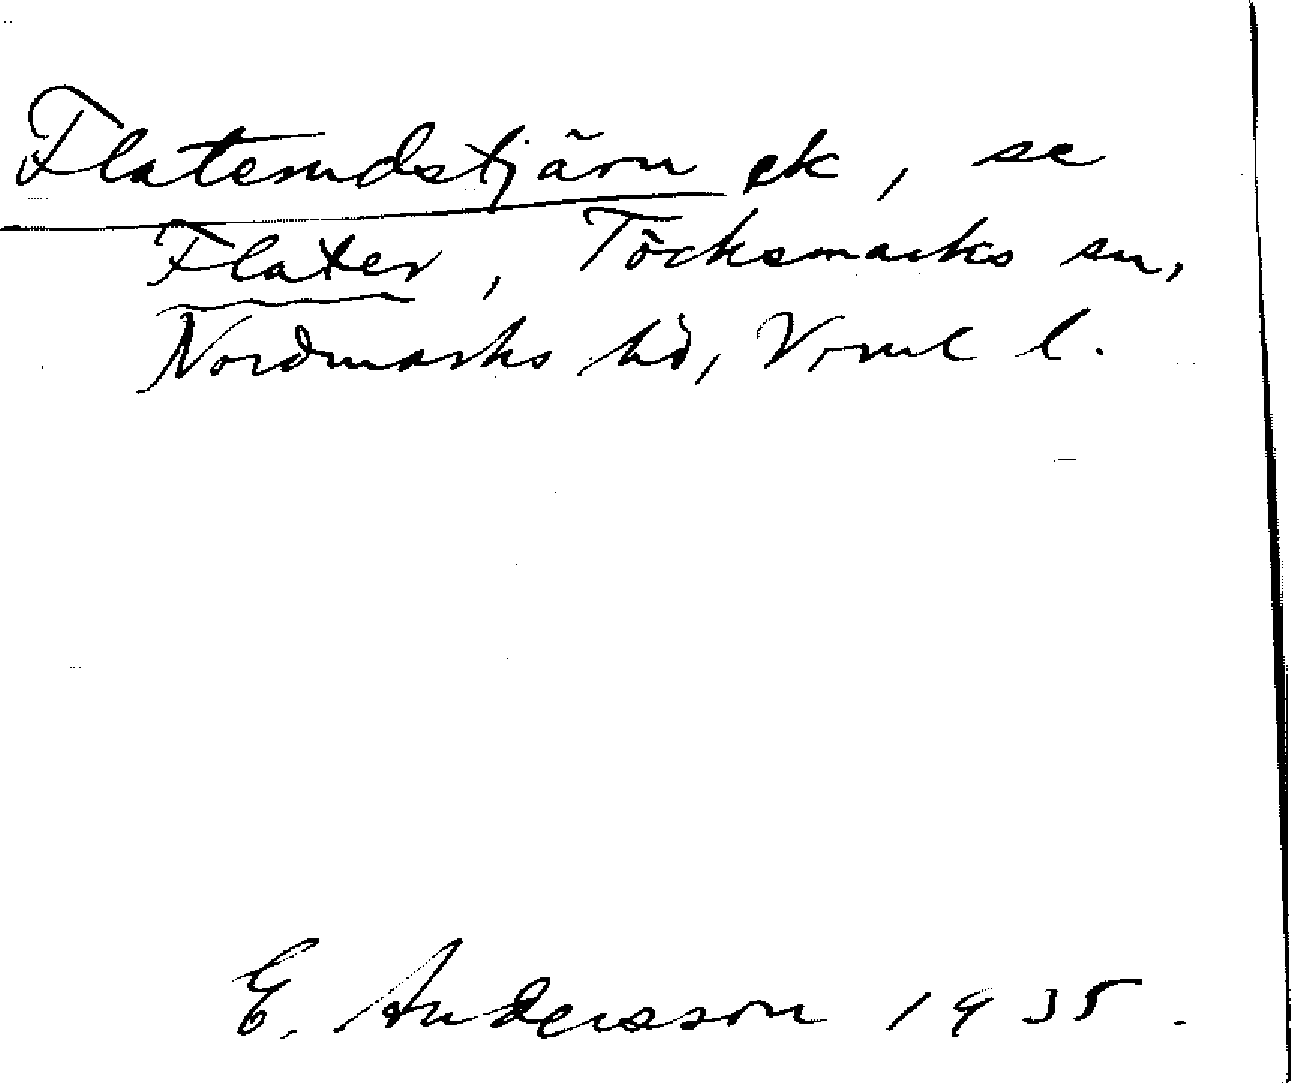 Flaterudstjärn ek, se
Flater, Töcksmarks sn,
Nordmarks hd, Vrml l.
E. Andersson 1935.